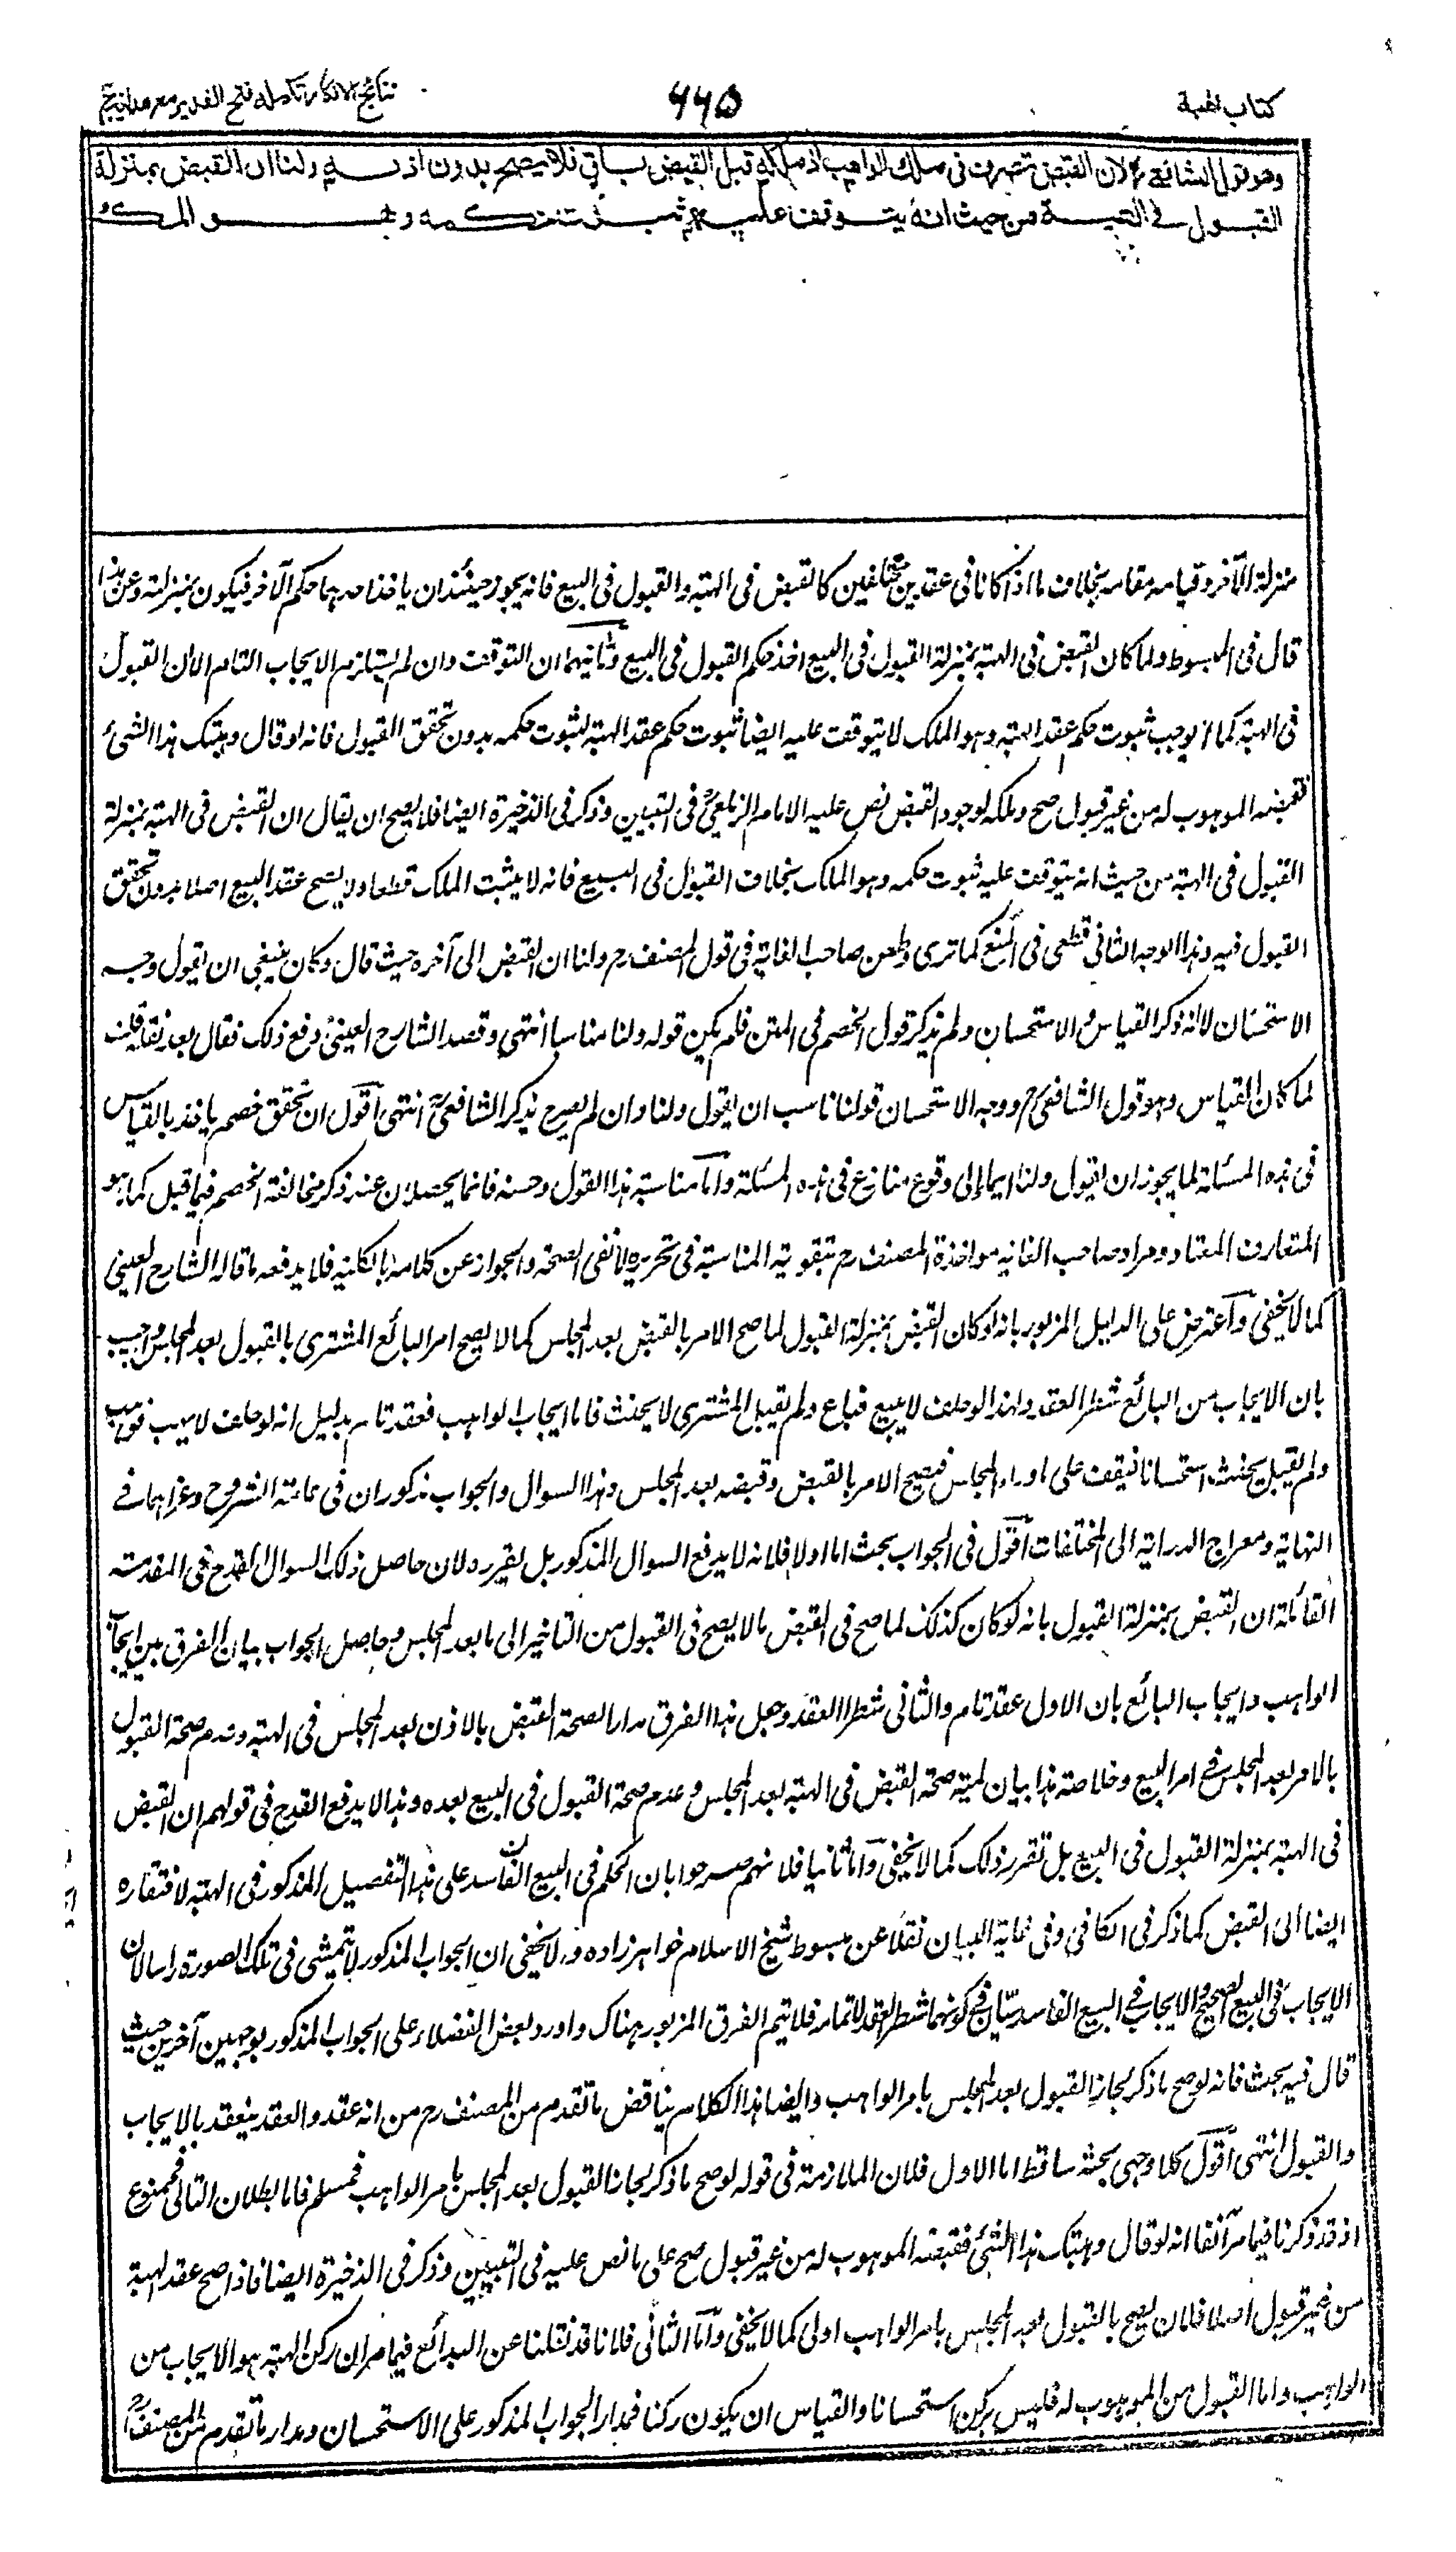 كتاب الهبة
٦٦٥
نتائج الافكار تكملة فتح القدير مع هدايه ج
وهو قول الشافعي رح لان القبض تصرف فى ملك الواهب اذ ملكه قبل القبض باقي فلا يصح بدون اذنه ولنا ان القبض بمنزلة
القبول فى الهبة من حيث انه يتوقف عليه ثبوت حكمه وهو الملك و
منزلة الآخر وقيامه مقامه بخلاف ما اذا كانا فى عقدين مختلفين كالقبض فى الهبة والقبول فى البيع فانه يجوز حينئذ ان ياخذ احدهما حكم الآخر فيكون بمنزلته وعن هذا
قال فى المبسوط ولما كان القبض فى الهبة بمنزلة القبول فى البيع اخذ حكم القبول فى البيع وثانيهما ان التوقف وان لم يستلزم الايجاب التام الا ان القبول
فى الهبة كما لا يوجب ثبوت حكم عقد الهبة وهو الملك لا يتوقف عليه ايضا ثبوت حكم عقد الهبة لثبوت حكمه بدون تحقق القبول فانه لو قال وهبتك هذا الشئ
فقبضه الموهوب له من غير قبول صح وملكه لوجود القبض نص عليه الامام الزيلعى فى التبيين وذكر فى الذخيرة ايضا فلا يصح ان يقال ان القبض فى الهبة بمنزلة
القبول فى الهبة من حيث انه يتوقف عليه ثبوت حكمه وهو الملك بخلاف القبول فى البيع فانه لا يثبت الملك قطعا ولا يصح عقد البيع اصلا بدون تحقق
القبول فيه وهذا الوجه الثانى قطعى فى المنع كما ترى وطعن صاحب الغاية فى قول المصنف رح ولنا ان القبض الى آخره حيث قال وكان ينبغى ان يقول وجه
الاستحسان لانه ذكر القياس والاستحسان ولم يذكر قول الخصم فى المتن فلم يكن قوله ولنا مناسبا انتهى وقصد الشارح العينى دفع ذلك فقال بعد نقله قلت
لما كان القياس وهو قول الشافعى رح ووجه الاستحسان قولنا ناسب ان يقول ولنا وان لم يصرح بذكر الشافعى انتهى اقول ان تحقق خصم ياخذ بالقياس
فى هذه المسئلة لما يجوز ان يقول ولنا ايماء الى وقوع منازع فى هذه المسئلة واما مناسبة هذا القول وحسنه فانما يحصلان عند ذكر مخالفة الخصم فيما قبل كما هو
المتعارف المعتاد ومراد صاحب الغاية مواخذة المصنف رح بتقوية المناسبة فى تحريره لا نفى الصحة والجواز عن كلامه بالكلية فلا يدفعه ما قاله الشارح العينى
كما لا يخفى واعترض على الدليل المزبور بانه لو كان القبض بمنزلة القبول لما صح الامر بالقبض بعد المجلس كما لا يصح امر البائع المشترى بالقبول بعد المجلس واجيب
بان الايجاب من البائع شطر العقد ولهذا لو حلف لا يبيع فباع ولم يقبل المشترى لا يحنث فاما ايجاب الواهب فعقد تام بدليل انه لو حلف لا يهب فوهب
ولم يقبل يحنث استحسانا فيقف على ما وراء المجلس فيصح الامر بالقبض وقبضه بعد المجلس وهذا السوال والجواب مذكوران فى عامة الشروح وعزاهما فى
النهاية ومعراج الدراية الى المختلفات اقول فى الجواب بحث اما اولا فلانه لا يدفع السوال المذكور بل يقرره لان حاصل ذلك السوال القدح فى المقدمة
القائلة ان القبض بمنزلة القبول بانه لو كان كذلك لما صح فى القبض ما لا يصح فى القبول من التاخير الى ما بعد المجلس وحاصل الجواب بيان الفرق بين ايجاب
الواهب وايجاب البائع بان الاول عقد تام والثانى شطر العقد وجعل هذا الفرق مدارا لصحة القبض بالاذن بعد المجلس فى الهبة وعدم صحة القبول
بالامر بعد المجلس فى امر البيع وخلاصته هذا بيان لمية صحة القبض فى الهبة بعد المجلس وعدم صحة القبول فى البيع بعده وهذا لا يدفع القدح فى قولهم ان القبض
فى الهبة بمنزلة القبول فى البيع بل تقرر ذلك كما لا يخفى واما ثانيا فلانهم صرحوا بان الحكم فى البيع الفاسد على هذا التفصيل المذكور فى الهبة لافتقاره
ايضا الى القبض كما ذكر فى الكافى وفى غاية البيان نقلا عن مبسوط شيخ الاسلام خواهر زاده ولا يخفى ان الجواب المذكور لا يتمشى فى تلك الصورة راسا لان
الايجاب فى البيع الصحيح والايجاب فى البيع الفاسد سيّان فى كونهما شطر العقد لا تمامه فلا يتم الفرق المزبور هناك واورد بعض الفضلاء على الجواب المذكور بوجهين آخرين حيث
قال فيه بحث فانه لو صح ما ذكر لجاز القبول بعد المجلس بامر الواهب وايضا هذا الكلام يناقض ما تقدم من المصنف رح من انه عقد والعقد ينعقد بالايجاب
والقبول انتهى اقول كلا وجهى بحثه ساقط اما الاول فلان الملازمة فى قوله لو صح ما ذكر لجاز القبول بعد المجلس بامر الواهب فمسلم فاما بطلان التالى فممنوع
اذ قد ذكرنا فيما مر آنفا انه لو قال وهبتك هذا الشئ فقبضه الموهوب له من غير قبول صح على ما نص عليه فى التبيين وذكر فى الذخيرة ايضا فاذا صح عقد الهبة
من غير قبول اصلا فلان يصح بالقبول بعد المجلس بامر الواهب اولى كما لا يخفى واما الثانى فلانا قد نقلنا عن البدائع فيما مر ان ركن الهبة هو الايجاب من
الواهب واما القبول من الموهوب له فليس بركن استحسانا والقياس ان يكون ركنا فمدار الجواب المذكور على الاستحسان ومدار ما تقدم من المصنف